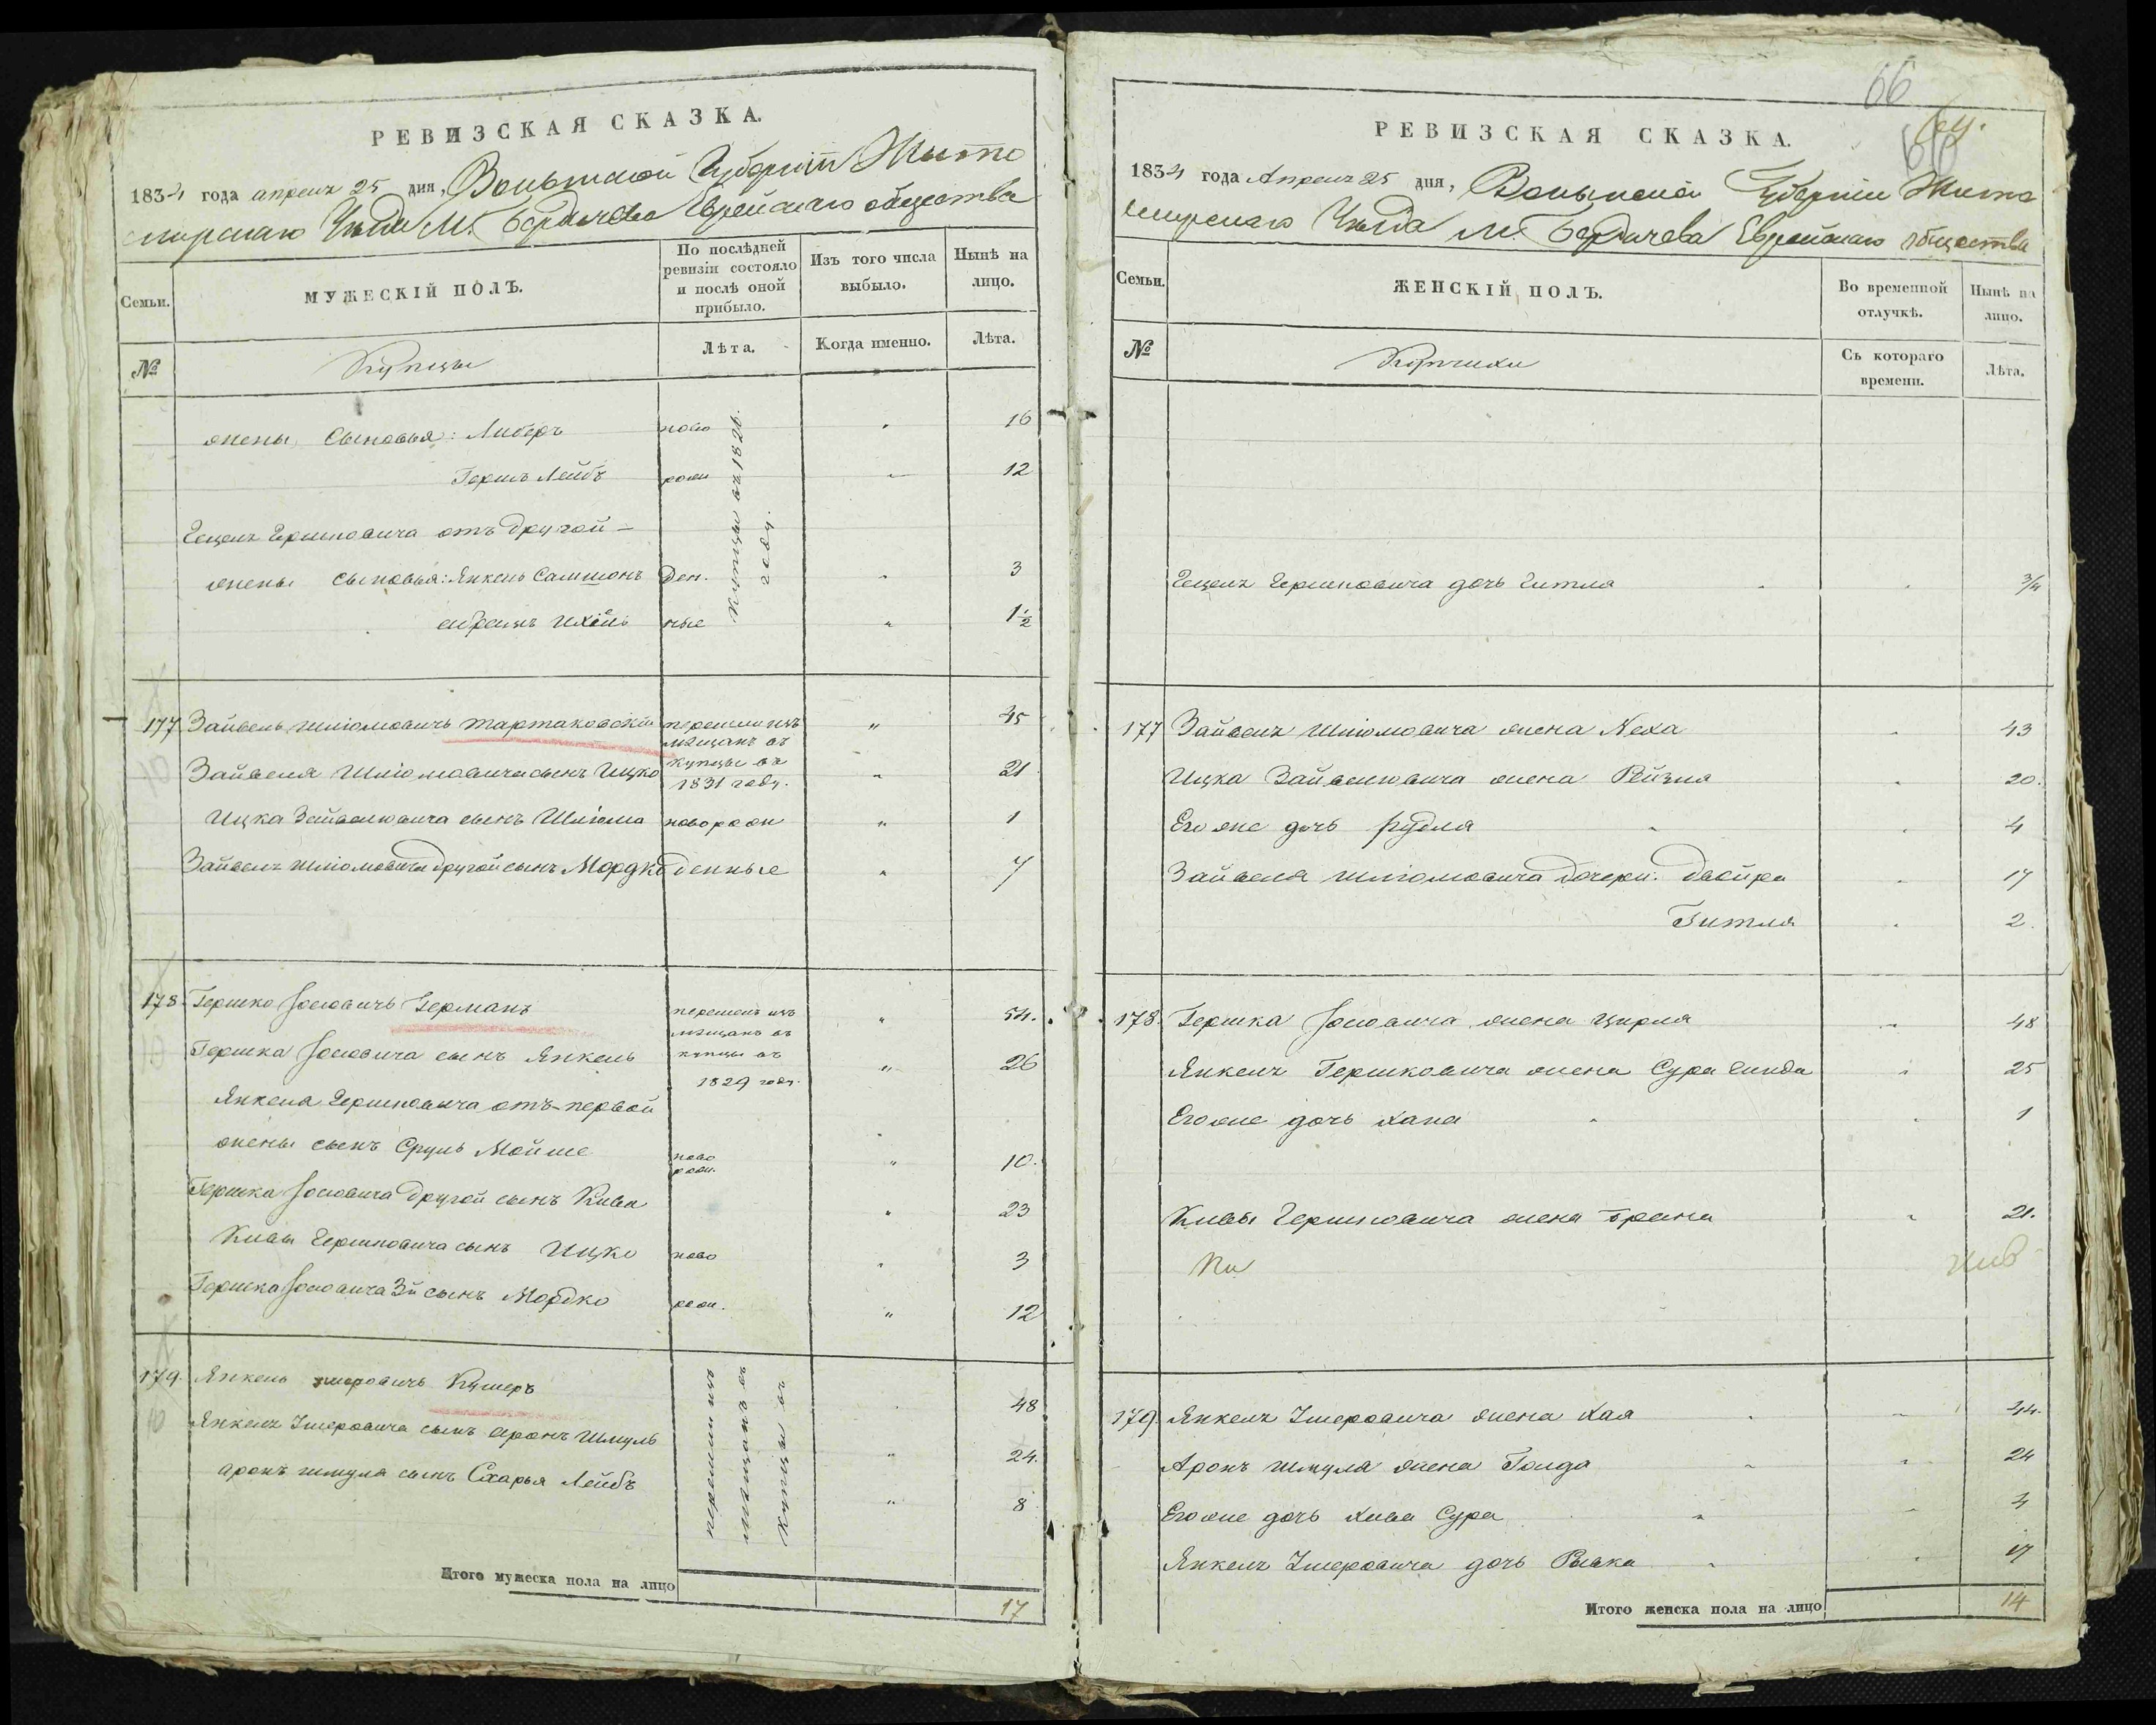 РЕВИЗСКАЯ СКАЗКА.
1834 года апреля 25 дня, Волынской Губернiи Жыто
мирскаго Уезда М. Бердичева Еврейскаго общества
Семьи.
МУЖЕСКІЙ ПОЛЪ.
По послѣдней ревизіи состояло и послѣ оной прибыло.
Изъ того числа выбыло.
Нынѣ на лицо.
№
Купцы
Лѣта.
Когда именно.
Лѣта.
жены сыновья: Либеръ ново 16
Гершъ Лейбъ рож 12
купцы въ 1826. году.
Гецеля Гершковича отъ другой
жены сыновья: Янкель Самшонъ ден. 3
ные 1 1/2
177 Зайвель Шліомовичъ Тартаковскій перешли изъ мѣщанъ въ купцы въ 1831 году. 45
Зайвеля Шліомовича сынъ Ицко 21
Ицка Зайвелювича сынъ Шліома новорож 1
Зайвеля Шліомовича другой сынъ Мордко денные 7
178. Гершко Іосіовичъ Германъ перешелъ изъ мѣщанъ въ купцы въ 1829 году. 54.
Гершка Іосіовича сынъ Янкель 26
Янкеля Гершковича отъ первой
жены сынъ Сруль Мойше ново рож. 10.
Гершка Іосіовича другой сынъ Кива 23
Кивы Гершковича сынъ Ицко ново 3
Гершка Іосіовича 3й сынъ Мордко рож. 12
179. Янкель Ишеровичъ Кушеръ 48
Янкеля Ишеровича сынъ Аронъ Шмуль 24.
Аронъ Шмуля сынъ Схарья Лейбъ 8
перешли изъ мѣщанъ въ купцы въ
Итого мужеска пола на лицо 17
66
РЕВИЗСКАЯ СКАЗКА.
1834 года Апреля 25 дня, Волынской Губерніи Жито
мирскаго Уезда М. Бердичева Еврейскаго общества
Семьи.
ЖЕНСКІЙ ПОЛЪ.
Во временной отлучкѣ.
Нынѣ на лицо.
№
Купчихи
Съ котораго времени.
Лѣта.
Гецеля Гершковича дочь Гитля 3/4
177 Зайвеля Шліомовича жена Неха 43
Ицка Зайвелювича жена Рейзля 20.
Его же дочь Рудля 4
Зайвеля Шліомовича дочери: Двойра 17
Гитля 2.
178. Гершка Іосіовича жена Цирля 48
Янкеля Гершковича жена Сура Гинда 25
Его же дочь Хана 1
Кивы Гершковича жена Брана 21.
179. Янкеля Ишеровича жена Хая 44.
Аронъ Шмуля жена Голда 24
Его же дочь Хива Сура 4
Янкеля Ишеровича дочь Ривка 17
Итого женска пола на лицо 14